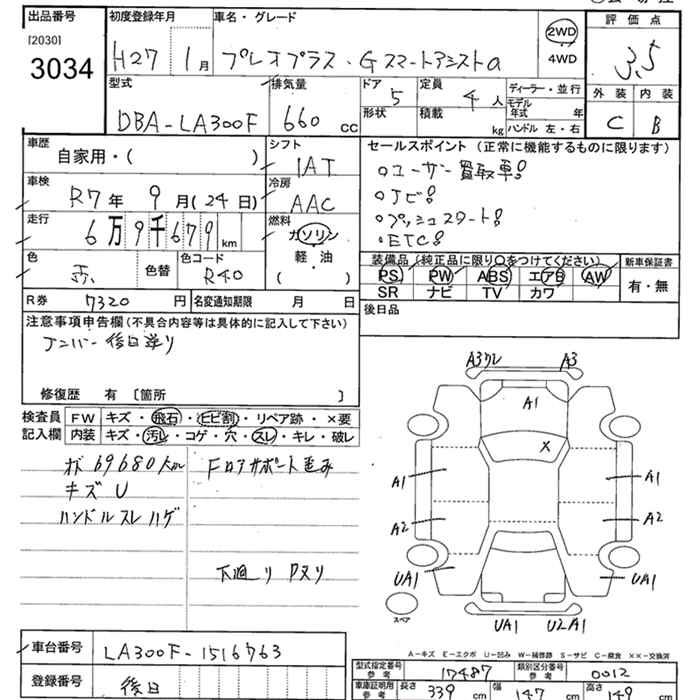 出品番号 初度登録年月 車名・グレード 2WD 評価点
[2030] 3034 H27 1月 プレオプラス・Gスマートアシストa 4WD 3.5
型式 排気量 ドア 5 定員 4人 ディーラー・並行 外装 内装
DBA-LA300F 660cc 形状 積載 kg モデル年式 年 C B
ハンドル 左・右
車歴 自家用・( ) シフト IAT セールスポイント (正常に機能するものに限ります)
車検 R7年 9月(24日) 冷房 AAC ○ユーザー買取車!
○ナビ!
走行 6万9千679km 燃料 ガソリン ○プッシュスタート!
軽・油 ○ETC!
( )
色 赤 色替 色コード R40 装備品 (純正品に限り○をつけてください) 新車保証書
PS PW ABS エアB AW 有・無
SR ナビ TV カワ
R券 7320円 名変通知期限 月 日 後日品
注意事項申告欄(不具合内容等は具体的に記入して下さい)
ナンバー後日送り
修復歴 有 〔箇所 〕
検査員 FW キズ・飛石・ヒビ割・リペア跡・×要
記入欄 内装 キズ・汚レ・コゲ・穴・スレ・キレ・破レ
69680 Fロアサポート歪み
キズU
ハンドルスレハゲ
下廻りPヌリ
A3ワレ A3
A1
X
A1 A1
A2 A2
UA1 UA1
スペア
UA1 U2A1
A-キズ E-エクボ U-凹み W-補修跡 S-サビ C-腐食 ××-交換済
車台番号 LA300F-1516763
登録番号 後日
型式指定番号 参考 17487 類別区分番号 参考 0012
車庫証明用 参考 長さ 339cm 幅 147cm 高さ 149cm